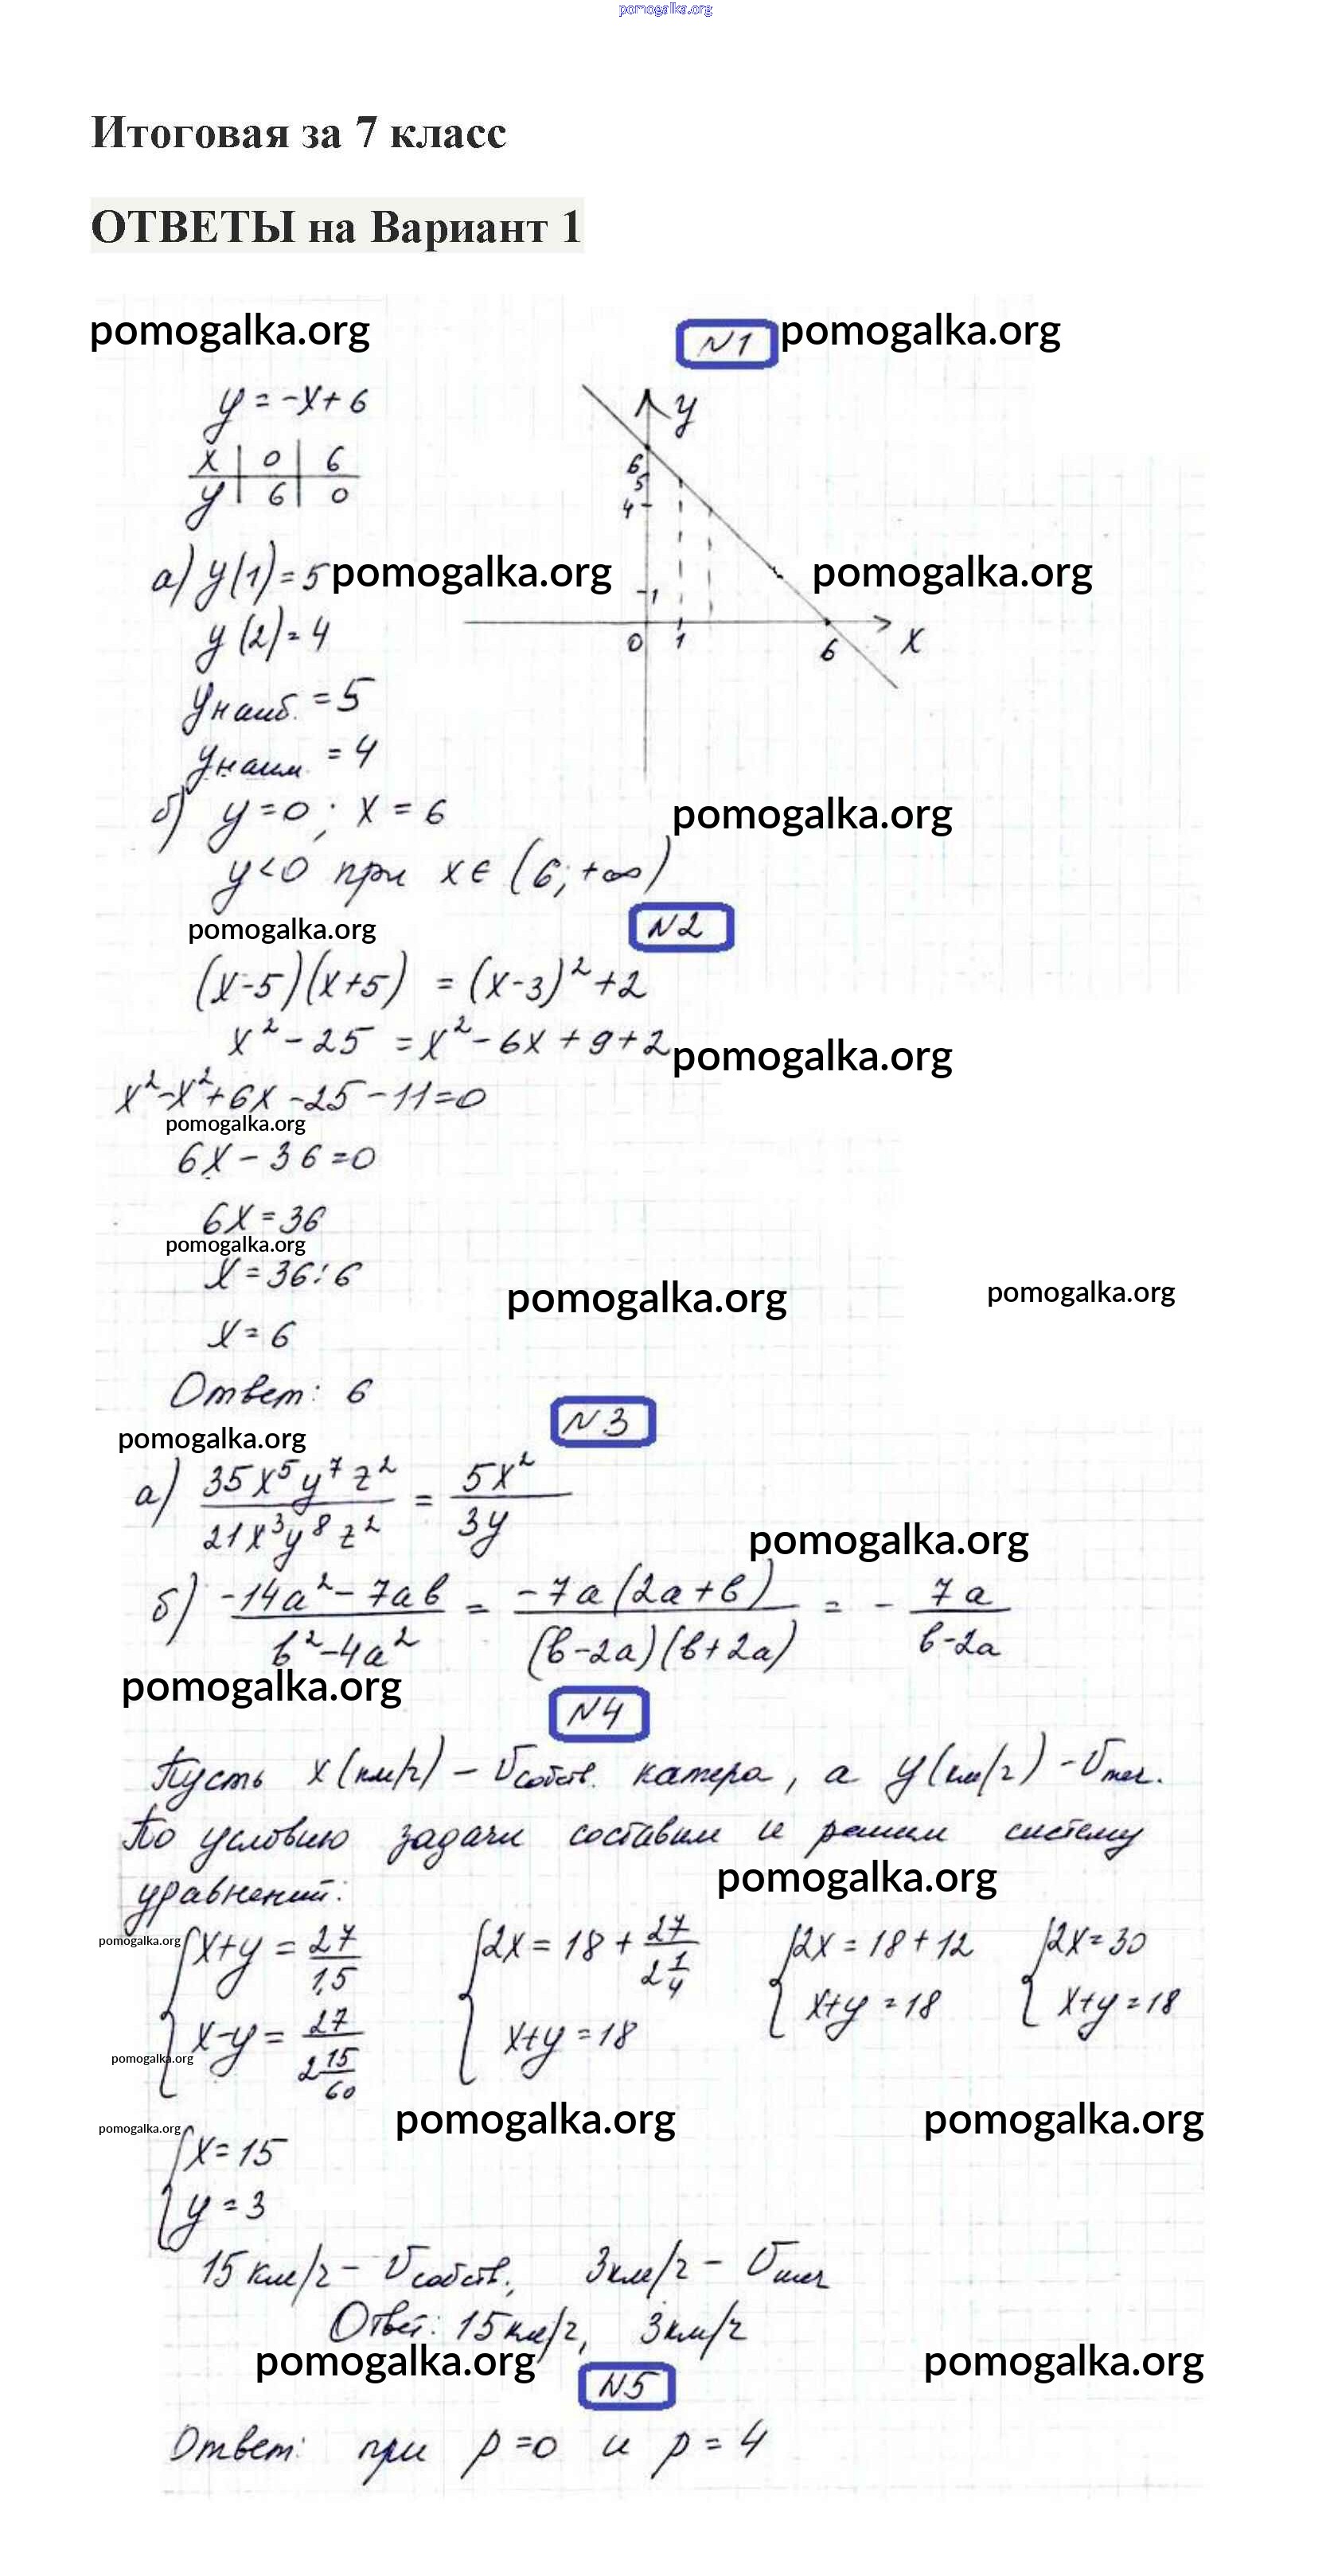 pomogalka.org
Итоговая за 7 класс
ОТВЕТЫ на Вариант 1
pomogalka.org N1 pomogalka.org
y = -x + 6
y
x | 0 | 6
y | 6 | 0
6
5
4
1
0 1 6 x
а) y(1) = 5 pomogalka.org pomogalka.org
y(2) = 4
yнаиб. = 5
yнаим. = 4
б) y = 0; x = 6 pomogalka.org
y < 0 при x ∈ (6; +∞)
pomogalka.org N2
(x-5)(x+5) = (x-3)² + 2
x² - 25 = x² - 6x + 9 + 2 pomogalka.org
x² - x² + 6x - 25 - 11 = 0
pomogalka.org
6x - 36 = 0
6x = 36
pomogalka.org
x = 36 : 6
pomogalka.org pomogalka.org
x = 6
Ответ: 6
N3
pomogalka.org
а) 35x⁵y⁷z² / 21x³y⁸z² = 5x² / 3y
pomogalka.org
б) -14a² - 7ab / b² - 4a² = -7a(2a+b) / (b-2a)(b+2a) = - 7a / b-2a
pomogalka.org
N4
Пусть x (км/ч) - Vсобств. катера, а y (км/ч) - Vтеч.
По условию задачи составим и решим систему
pomogalka.org
уравнений:
pomogalka.org
{ x+y = 27/1,5 { 2x = 18 + 27/2 1/4 { 2x = 18 + 12 { 2x = 30
x-y = 27/2 15/60 x+y = 18 x+y = 18 x+y = 18
pomogalka.org
pomogalka.org pomogalka.org
pomogalka.org
{ x = 15
y = 3
15 км/ч - Vсобств., 3 км/ч - Vтеч
Ответ: 15 км/ч, 3 км/ч
pomogalka.org pomogalka.org
N5
Ответ: при p = 0 и p = 4